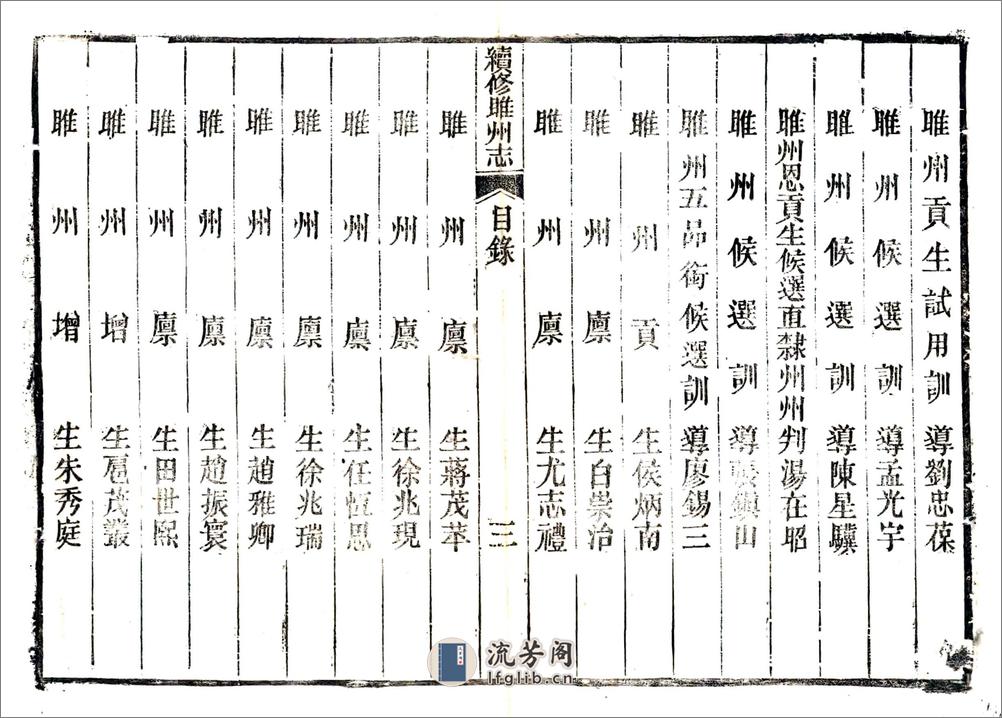 睢州貢生試用訓導劉忠葆
睢州候選訓導孟光宇
睢州候選訓導陳星驥
睢州恩貢生候選直隸州州判湯在昭
睢州候選訓導張鎮山
睢州五品銜候選訓導廖錫三
睢州貢生侯炳南
睢州廩生白崇治
睢州廩生尤志禮
續修睢州志 目錄 三
睢州廩生蔣茂苹
睢州廩生徐兆現
睢州廩生任恆思
睢州廩生徐兆瑞
睢州廩生趙雅卿
睢州廩生趙振寰
睢州廩生田世熙
睢州增生扈茂叢
睢州增生朱秀庭
流芳阁
lfglib.cn